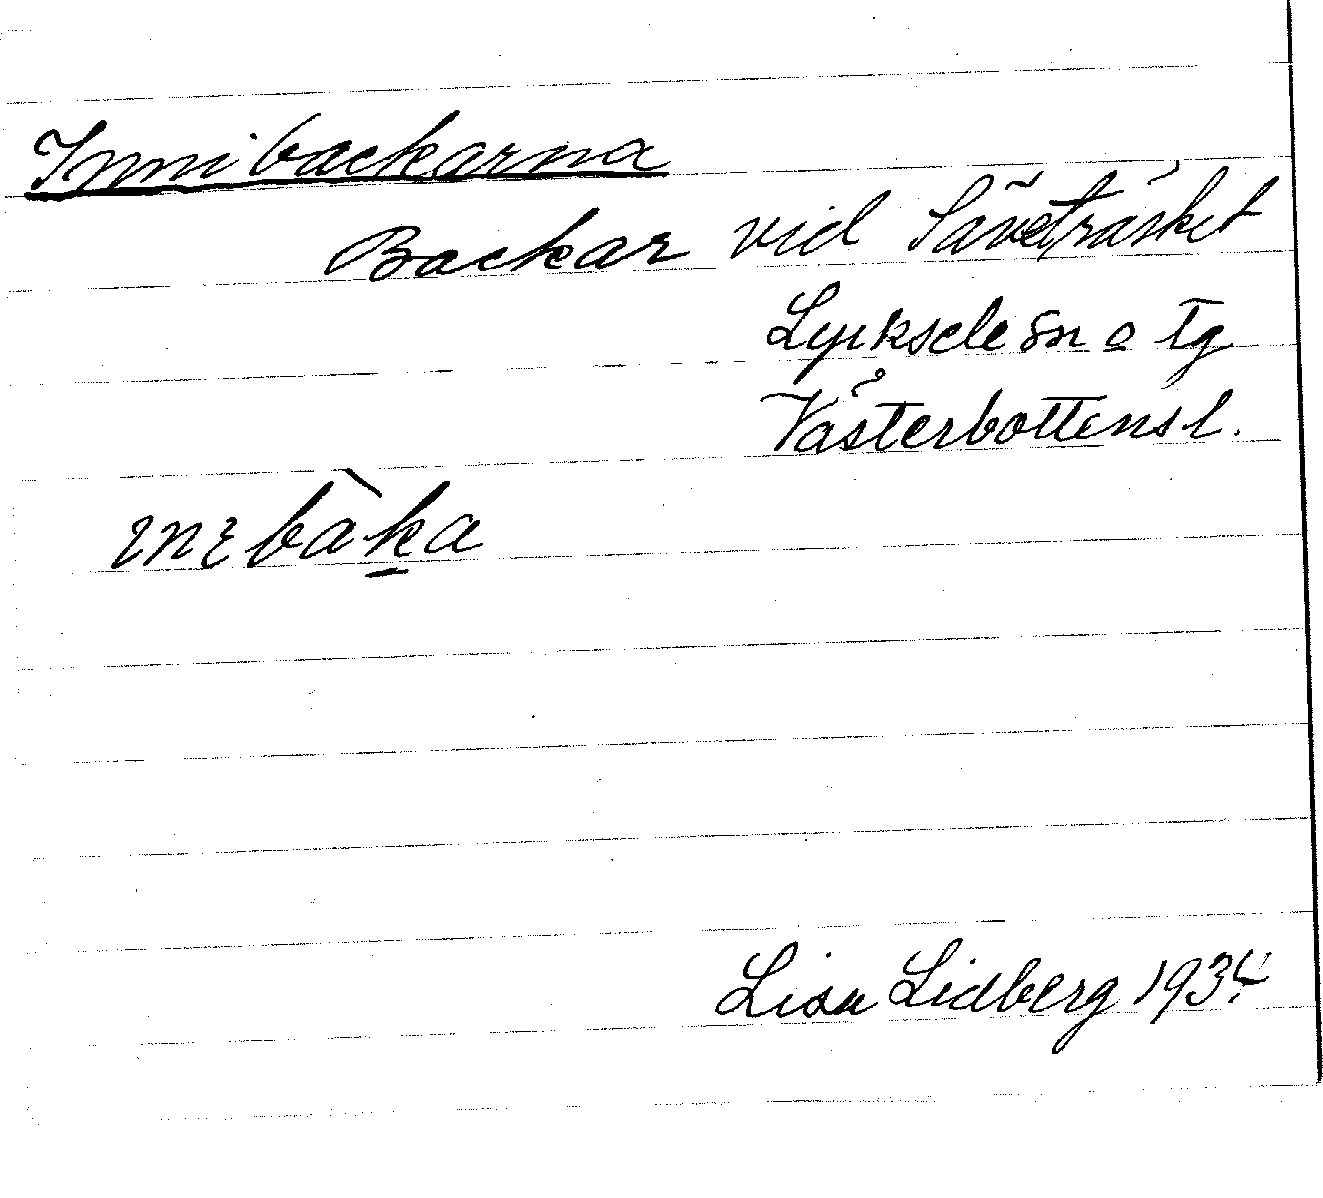 Innibackarna
Backar vid Säveträsket
Lycksele sn o tg
Västerbottens l.
Lisa Lidberg 1934